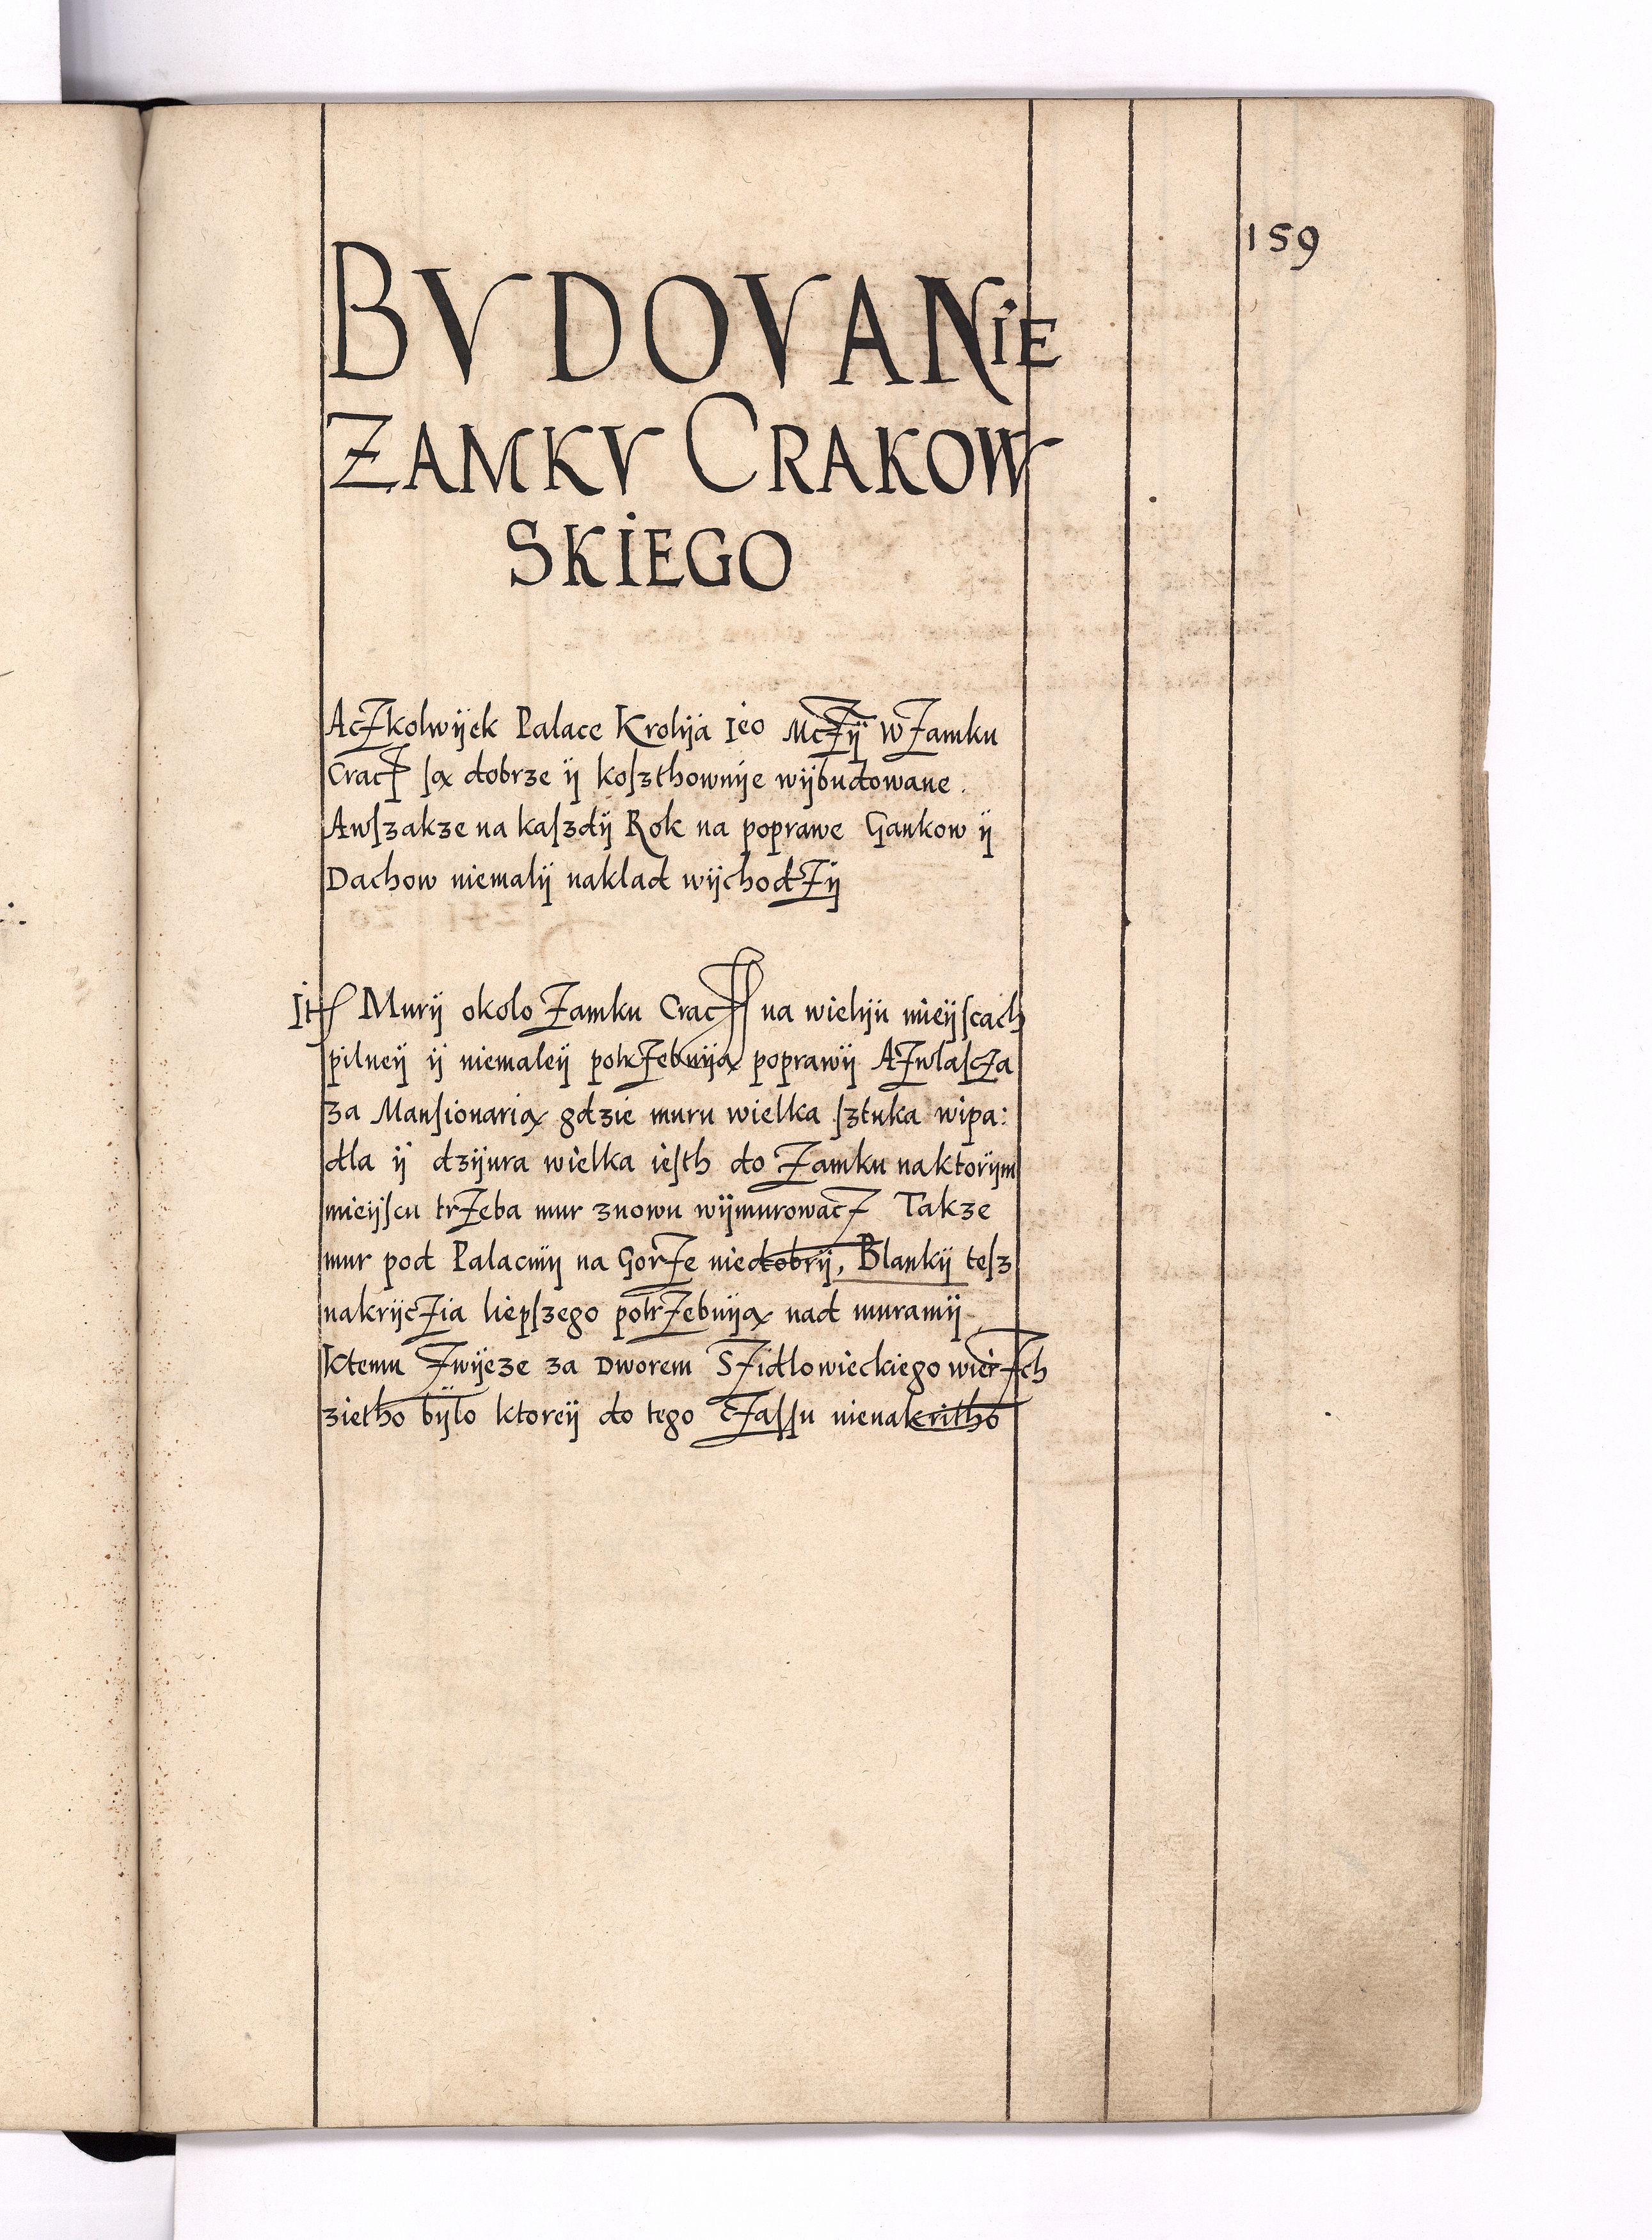 159
BVDOVANiE
ZAMKV CRAKOW
SKiEGO
Aczkolwÿek Palace Krolÿa Ieo Mczÿ w Zamku
Crac są dobrze ÿ koſzthownÿe wÿbudowane.
Awſzakze na kaſzdÿ Rok na poprawe Gankow ÿ
Dachow niemalÿ naklad wÿchodzÿ
It Murÿ okolo Zamku Crac na wielÿu mieÿſcach
pilneÿ ÿ niemaleÿ potrzebuÿą poprawÿ Azwlaſcza
za Manſionarią gdzie muru wielka ſztuka wipa:
dla ÿ dzÿura wielka ieſth do Zamku naktorÿm
mieÿſcu trzeba mur znowu wÿmurowacz Takze
mur pod Palacmÿ na Gorze niedobrÿ, Blankÿ teſz
nakrÿczia liepſzego potrzebuÿą nad muramÿ
Ktemu Zwÿeze za Dworem Szidlowieckiego wierzch
zietho bÿlo ktoreÿ do tego czaſſu nienakritho